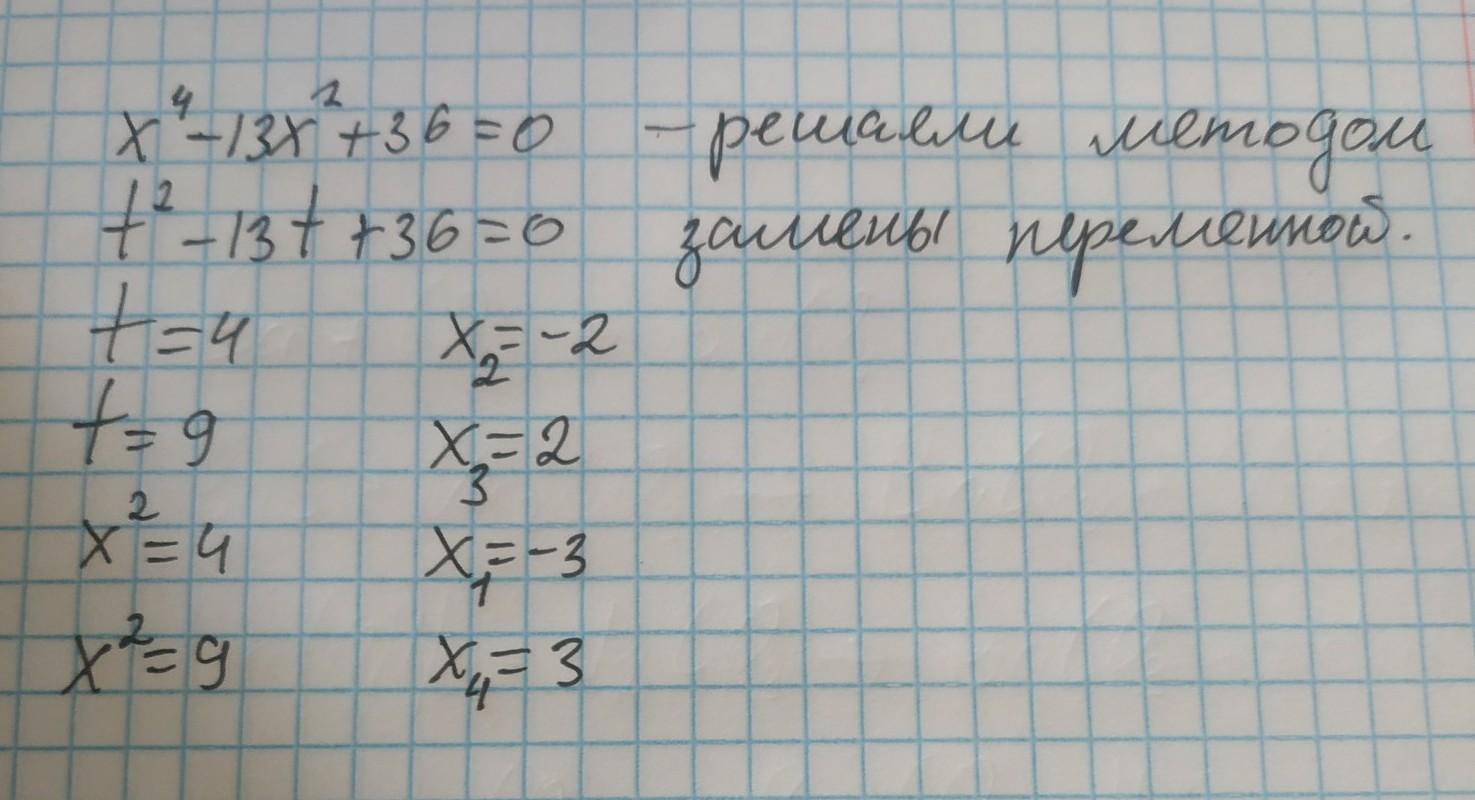 x⁴-13x²+36=0 - решаем методом
t²-13t+36=0 замены переменной.
t=4 x₂=-2
t=9 x₃=2
x²=4 x₁=-3
x²=9 x₄=3